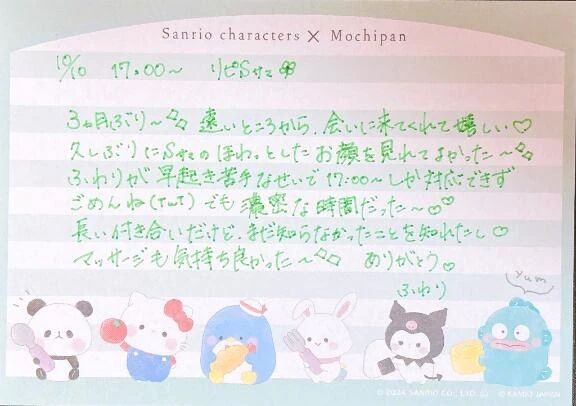 Sanrio characters × Mochipan
10/10 17:00～ リピSサマ
3ヵ月ぶり～ 遠いところから、会いに来てくれて嬉しい♡
久しぶりにSサマのほわっとしたお顔を見れてよかった～
ふわりが早起き苦手なせいで17:00～しか対応できず
ごめんね(TωT) でも濃密な時間だった～♡♡
長い付き合いだけど、まだ知らなかったことを知れたし♡
マッサージも気持ち良かった～ ありがとう♡
ふわり
yum
© 2024 SANRIO CO., LTD. Ⓢ © KAMIO JAPAN